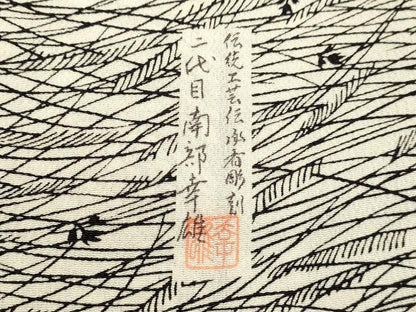 伝統工芸伝承者彫刻
二代目南部幸雄